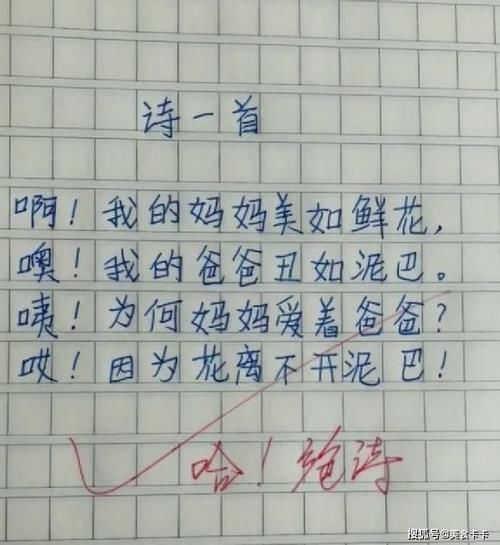 诗一首
啊！我的妈妈美如鲜花，
噢！我的爸爸丑如泥巴。
咦！为何妈妈爱着爸爸？
哎！因为花离不开泥巴！
哈！绝诗
搜狐号@美食卡卡